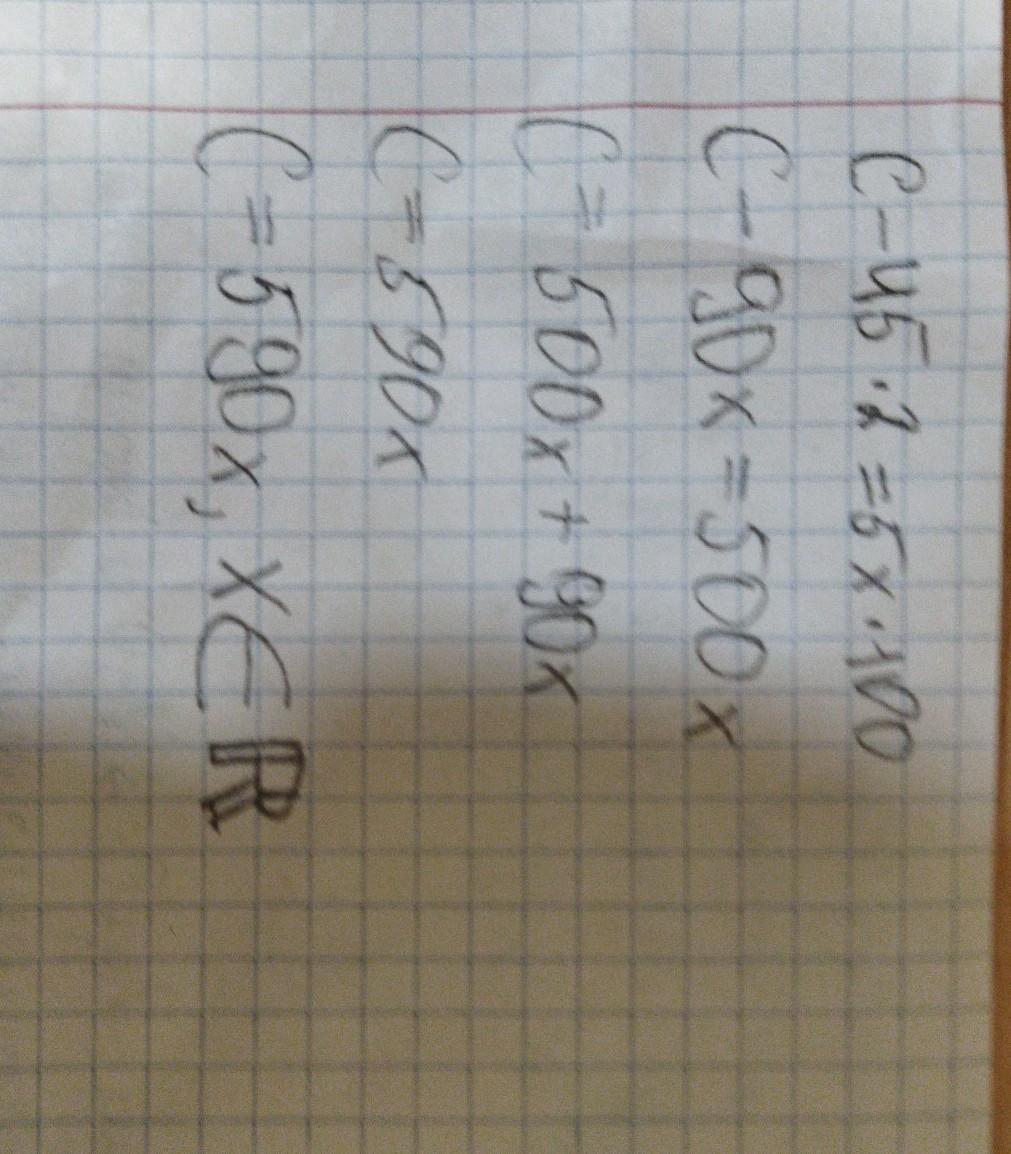 C-45·2=5x·100
C-90x=500x
C=500x+90x
C=590x
C=590x, x∈ℝ